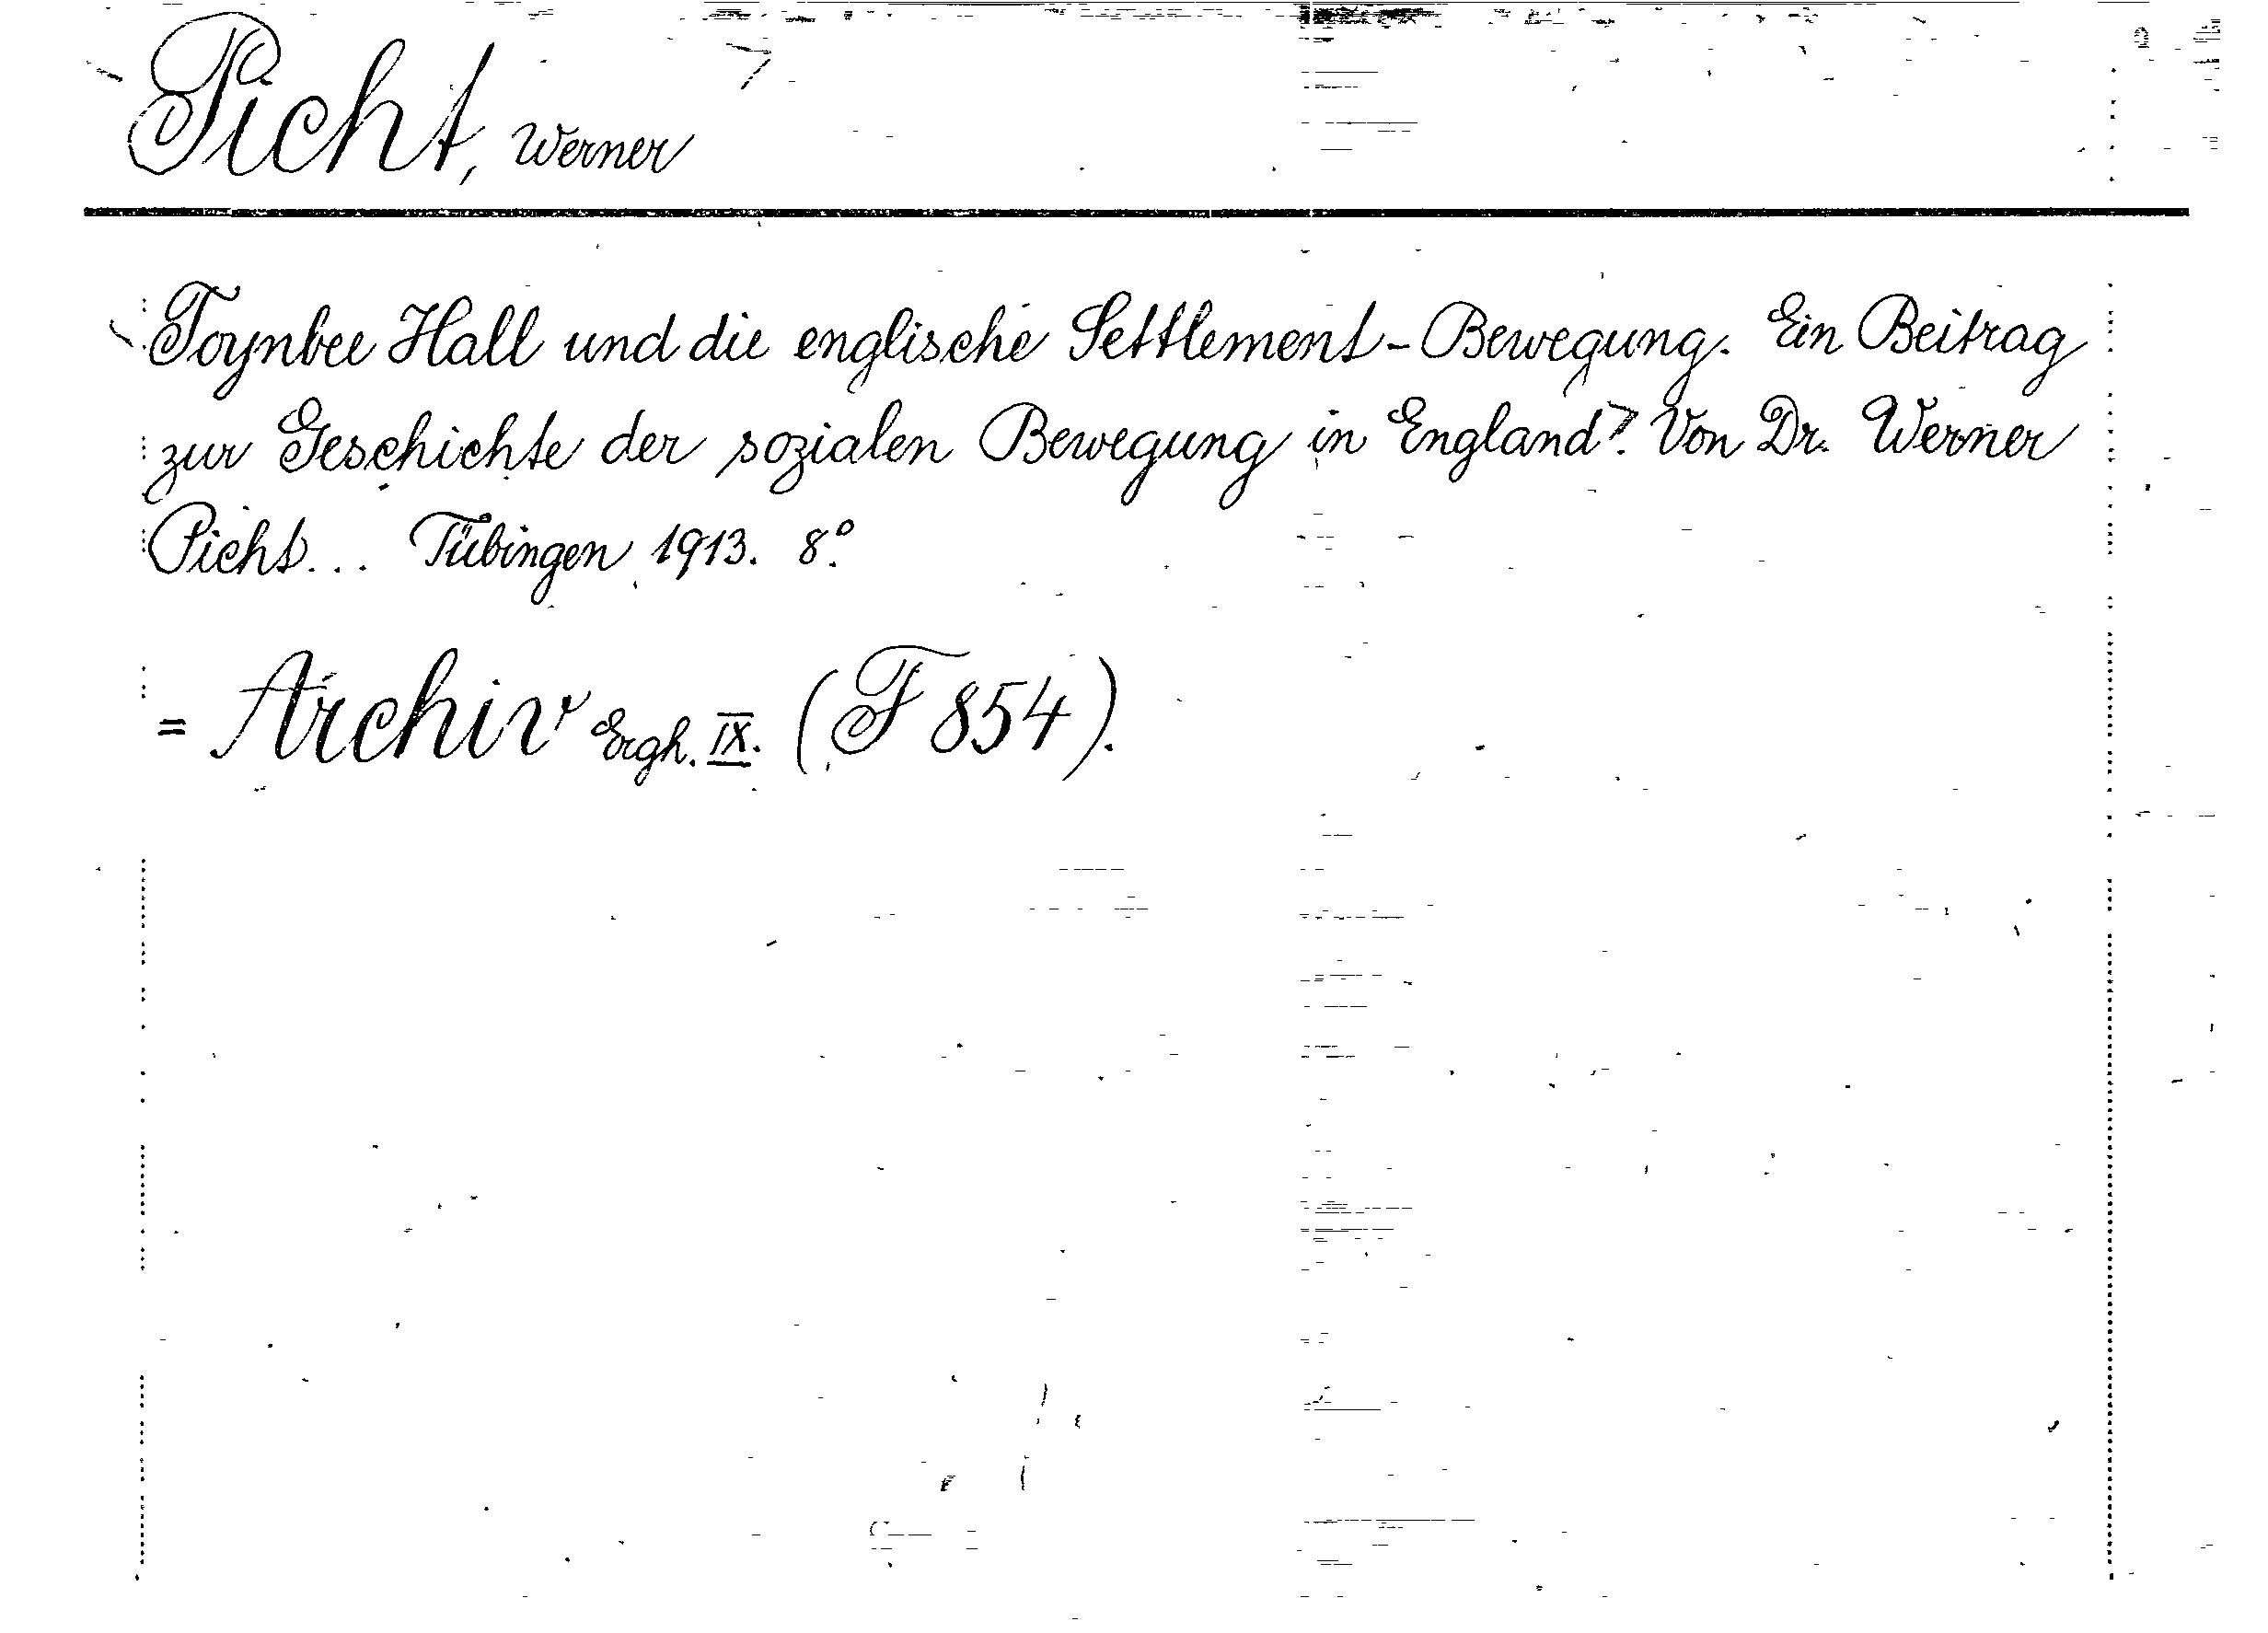 Picht, Werner
Toynbee Hall und die englische Settlement-Bewegung. Ein Beitrag
zur Geschichte der sozialen Bewegung in England. Von Dr. Werner
Picht... Tübingen 1913. 8°.
= Archiv Ergh. IX. (F 854).